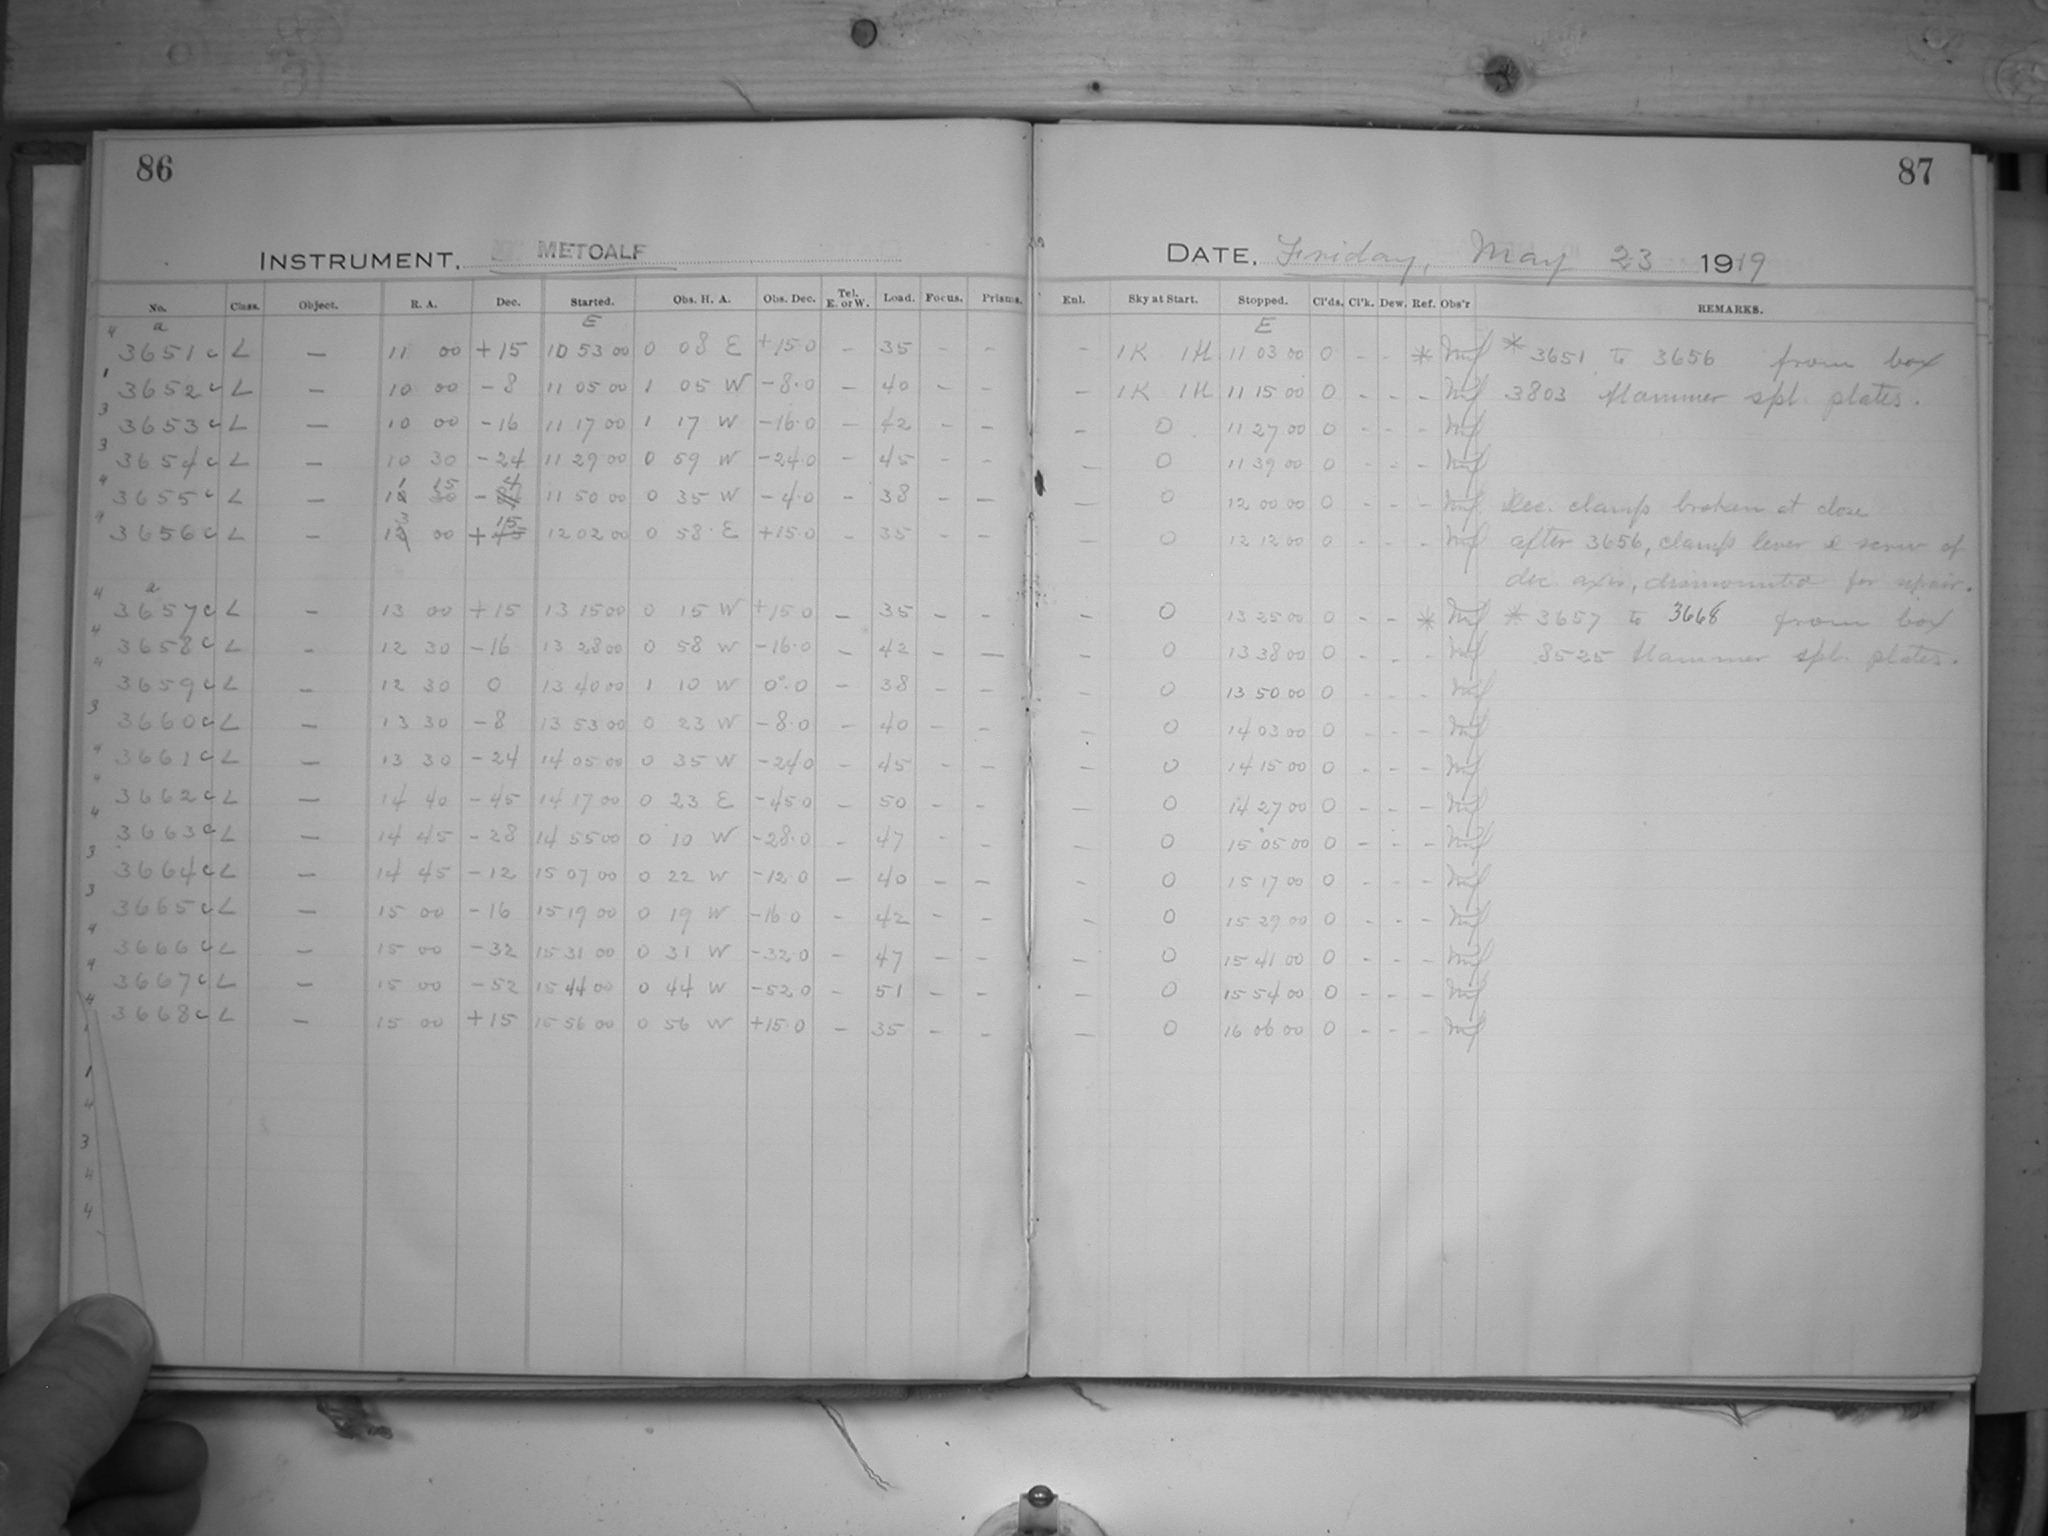 86
87
INSTRUMENT. METCALF
DATE. Friday, May 23 1919
No. Class. Object. R. A. Dec. Started. Obs. H. A. Obs. Dec. Tel. E. or W. Load. Focus. Prisms. Enl. Sky at Start. Stopped. Cl'ds. Cl'k. Dew. Ref. Obs'r REMARKS.
a E E
4 3651 c L – 11 00 +15 10 53 00 0 08 E +15.0 – 35 – – – 1K 1H 11 03 00 0 - - * * 3651 to 3656 from box
1 3652 c L – 10 00 -8 11 05 00 1 05 W -8.0 – 40 – – – 1K 1H 11 15 00 0 - - - 3803 Hammer spl. plates.
3 3653 c L – 10 00 -16 11 17 00 1 17 W -16.0 – 42 – – – 0 11 27 00 0 - - -
3 3654 c L – 10 30 -24 11 29 00 0 59 W -24.0 – 45 – – – 0 11 39 00 0 - - -
4 3655 c L – 11 15 -4 11 50 00 0 35 W -4.0 – 38 – – – 0 12 00 00 0 - - - Dec. clamp broken at close
4 3656 c L – 13 00 +15 12 02 00 0 58 E +15.0 – 35 – – – 0 12 12 00 0 - - - after 3656, clamp lever & screw of
dec. axis, dismounted for repair.
a
4 3657 c L – 13 00 +15 13 15 00 0 15 W +15.0 – 35 – – – 0 13 25 00 0 - - * * 3657 to 3668 from box
4 3658 c L – 12 30 -16 13 28 00 0 58 W -16.0 – 42 – – – 0 13 38 00 0 - - - 8525 Hammer spl. plates.
4 3659 c L – 12 30 0 13 40 00 1 10 W 0°.0 – 38 – – – 0 13 50 00 0 - - -
3 3660 c L – 13 30 -8 13 53 00 0 23 W -8.0 – 40 – – – 0 14 03 00 0 - - -
4 3661 c L – 13 30 -24 14 05 00 0 35 W -24.0 – 45 – – – 0 14 15 00 0 - - -
4 3662 c L – 14 40 -45 14 17 00 0 23 E -45.0 – 50 – – – 0 14 27 00 0 - - -
4 3663 c L – 14 45 -28 14 55 00 0 10 W -28.0 – 47 – – – 0 15 05 00 0 - - -
3 3664 c L – 14 45 -12 15 07 00 0 22 W -12.0 – 40 – – – 0 15 17 00 0 - - -
3 3665 c L – 15 00 -16 15 19 00 0 19 W -16.0 – 42 – – – 0 15 29 00 0 - - -
4 3666 c L – 15 00 -32 15 31 00 0 31 W -32.0 – 47 – – – 0 15 41 00 0 - - -
4 3667 c L – 15 00 -52 15 44 00 0 44 W -52.0 – 51 – – – 0 15 54 00 0 - - -
4 3668 c L – 15 00 +15 15 56 00 0 56 W +15.0 – 35 – – – 0 16 06 00 0 - - -
1
4
3
4
4